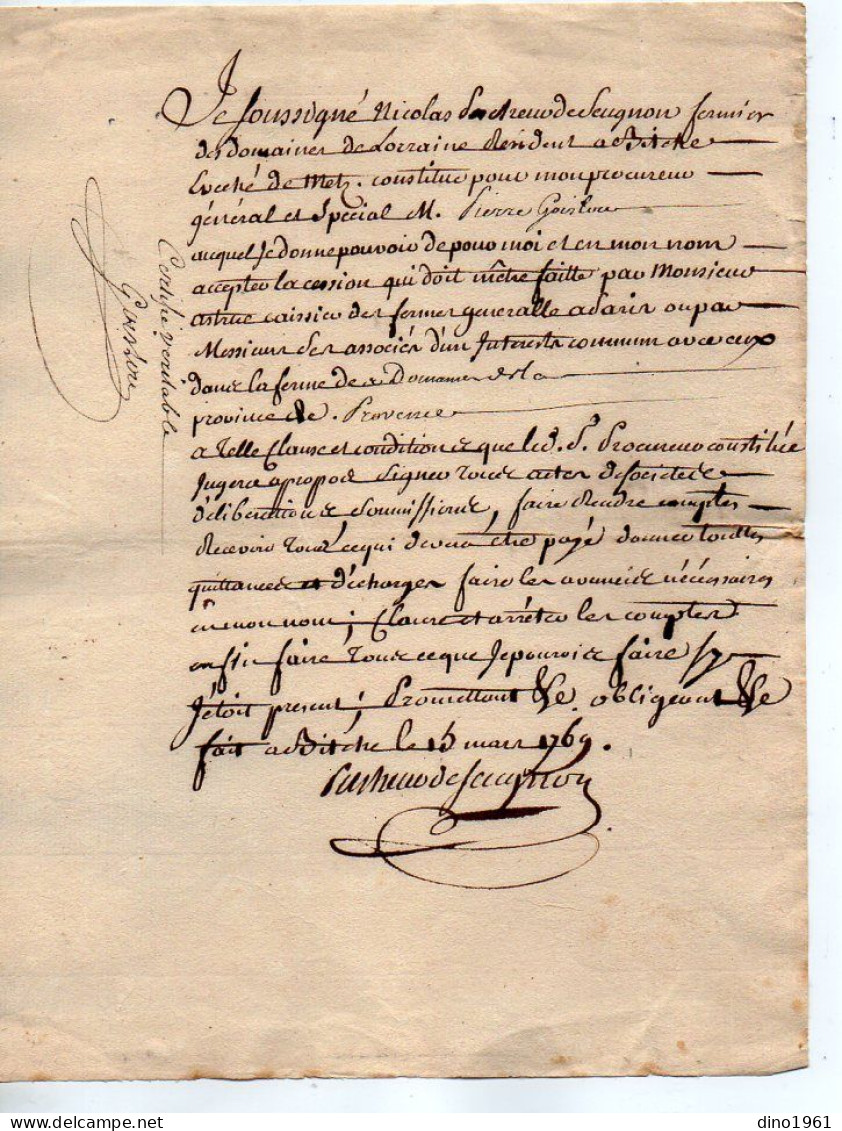 Je soussigné Nicolas de Seugnon fermier
des domaines de Lorraine Résident a Bitche
Eveché de Metz. constitue pour mon procureur
général et spécial M. Pierre
auquel Je donne pouvoir de pour moi et en mon nom
accepter la cession qui doit m'être faitte par Monsieur
astruc caissier des fermes generalle a Paris ou par
Messieurs ses associés d'un Interests commun avec eux
dans la ferme des Domaines de la
province de. Provence
a Telle Clause et conditions que led. S. Procureur constitüé
Jugera a propos signer Tous actes de societés
déliberations soumissions, faire Rendre comptes
Recevoir Tout ce qui devra être payé donner touttes
quittances et décharges faire les avances nécessaires
en mon nom; Clorre et arrêter les comptes
enfin faire Tous ce que Je pourois faire sy
J'étoit present; Promettant &c. obligeant &c
fait a Bitche le 15 mars 1769.
de Seugnon
Certifié veritable
dino1961